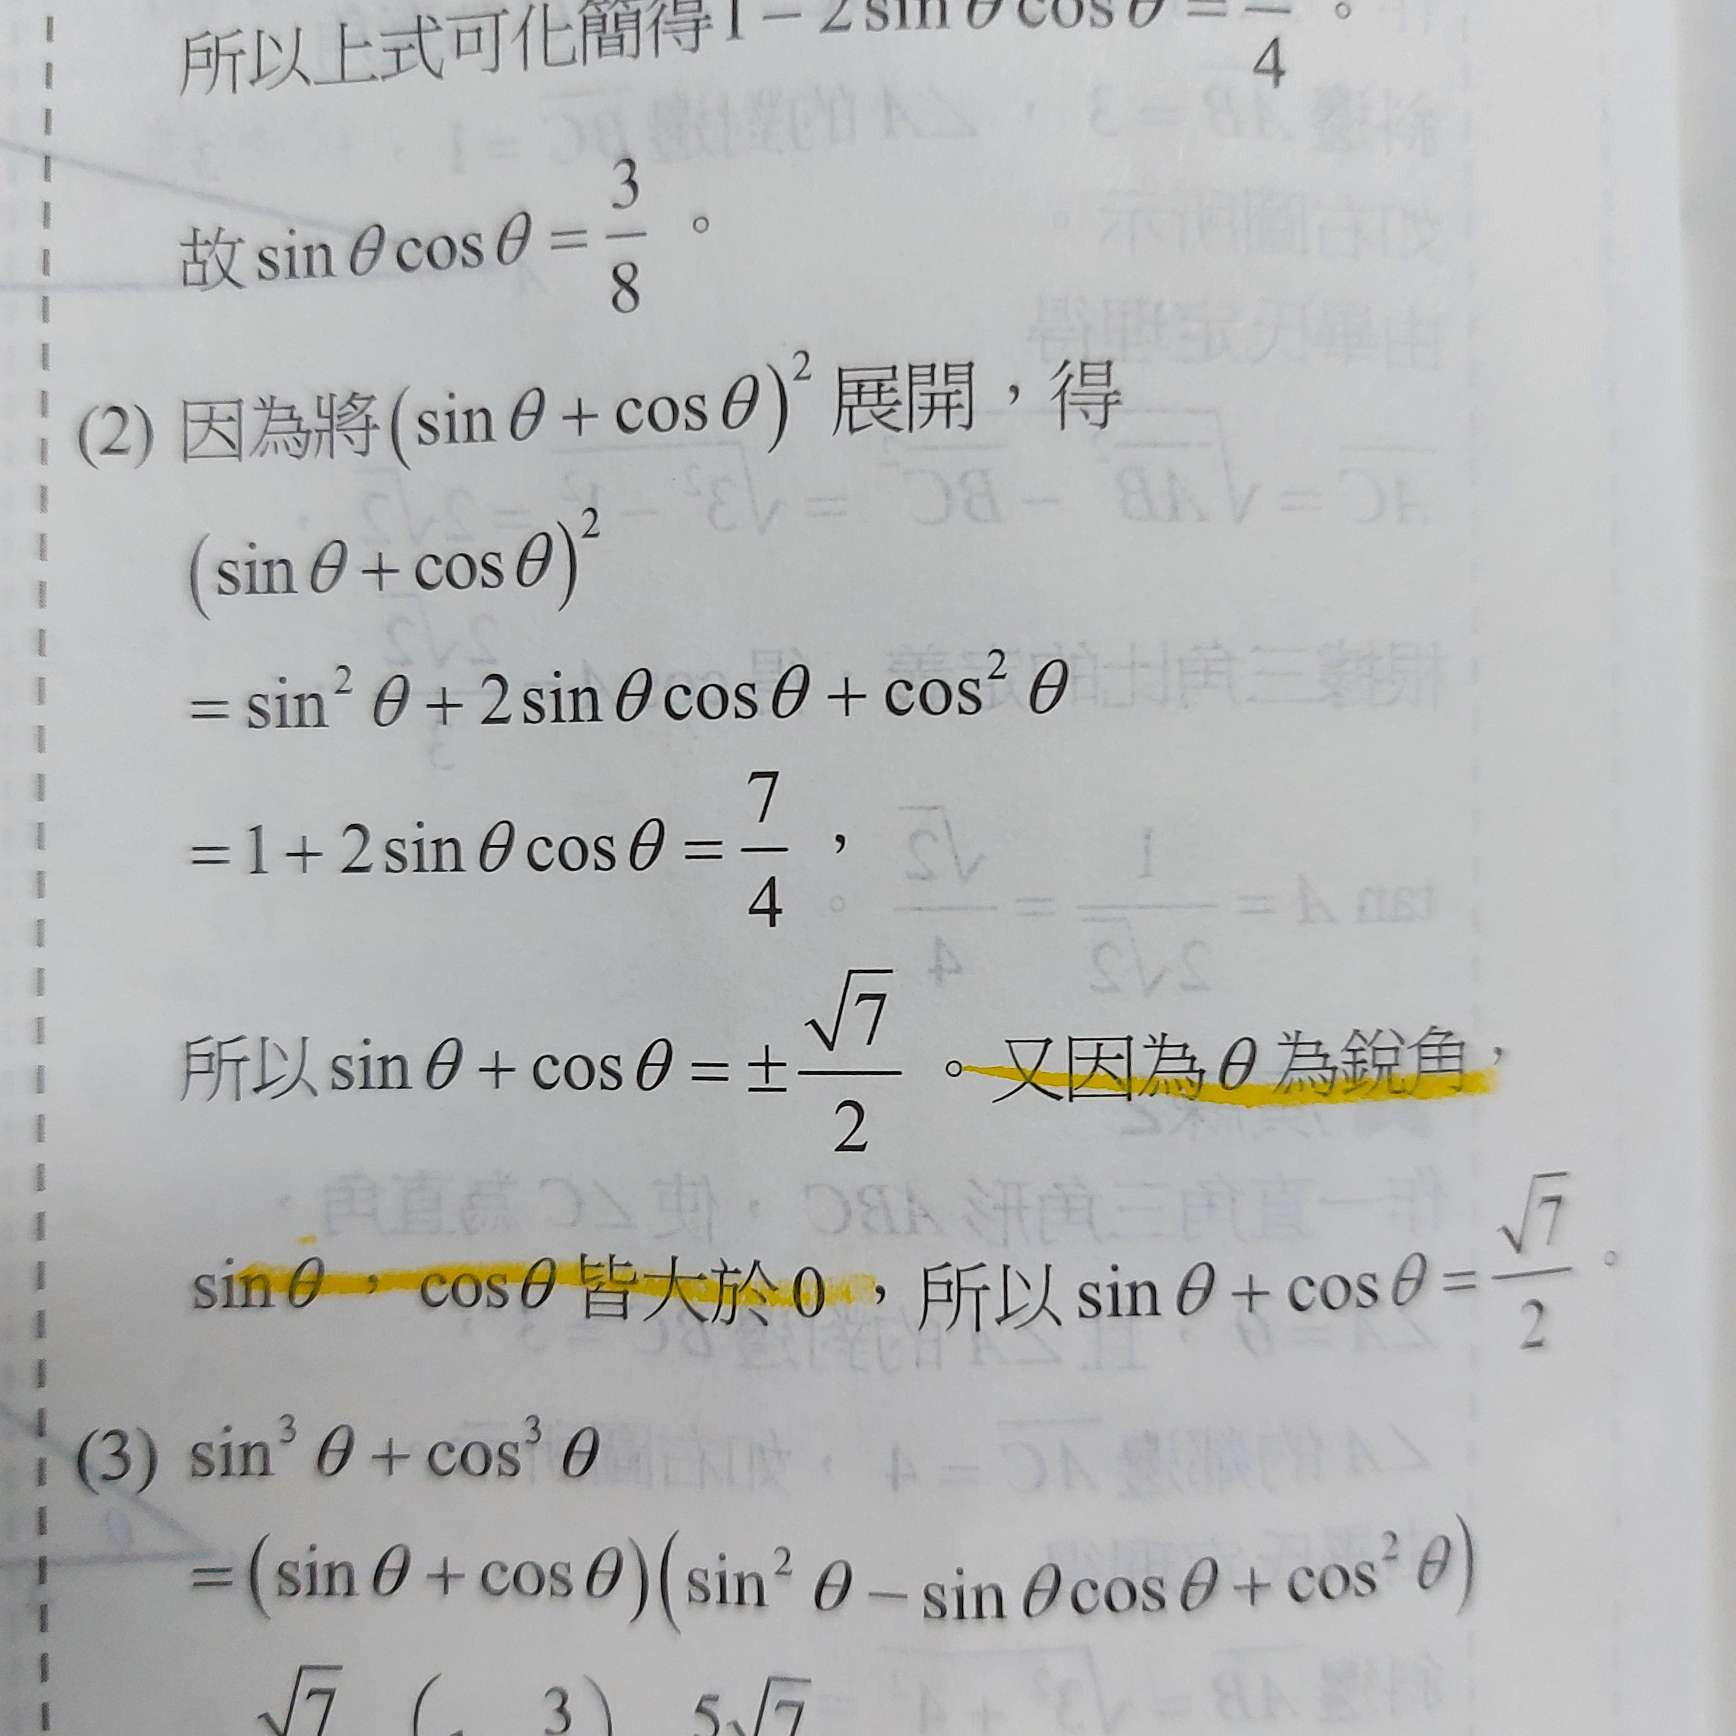 所以上式可化簡得1 − 2sin θ cos θ = /4。
故 sin θ cos θ = 3/8。
(2) 因為將(sin θ + cos θ)² 展開，得
(sin θ + cos θ)²
= sin² θ + 2sin θ cos θ + cos² θ
= 1 + 2sin θ cos θ = 7/4，
所以 sin θ + cos θ = ±√7/2。又因為 θ 為銳角，
sin θ，cos θ 皆大於 0，所以 sin θ + cos θ = √7/2。
(3) sin³ θ + cos³ θ
= (sin θ + cos θ)(sin² θ − sin θ cos θ + cos² θ)
√7 ( 3 ) 5√7